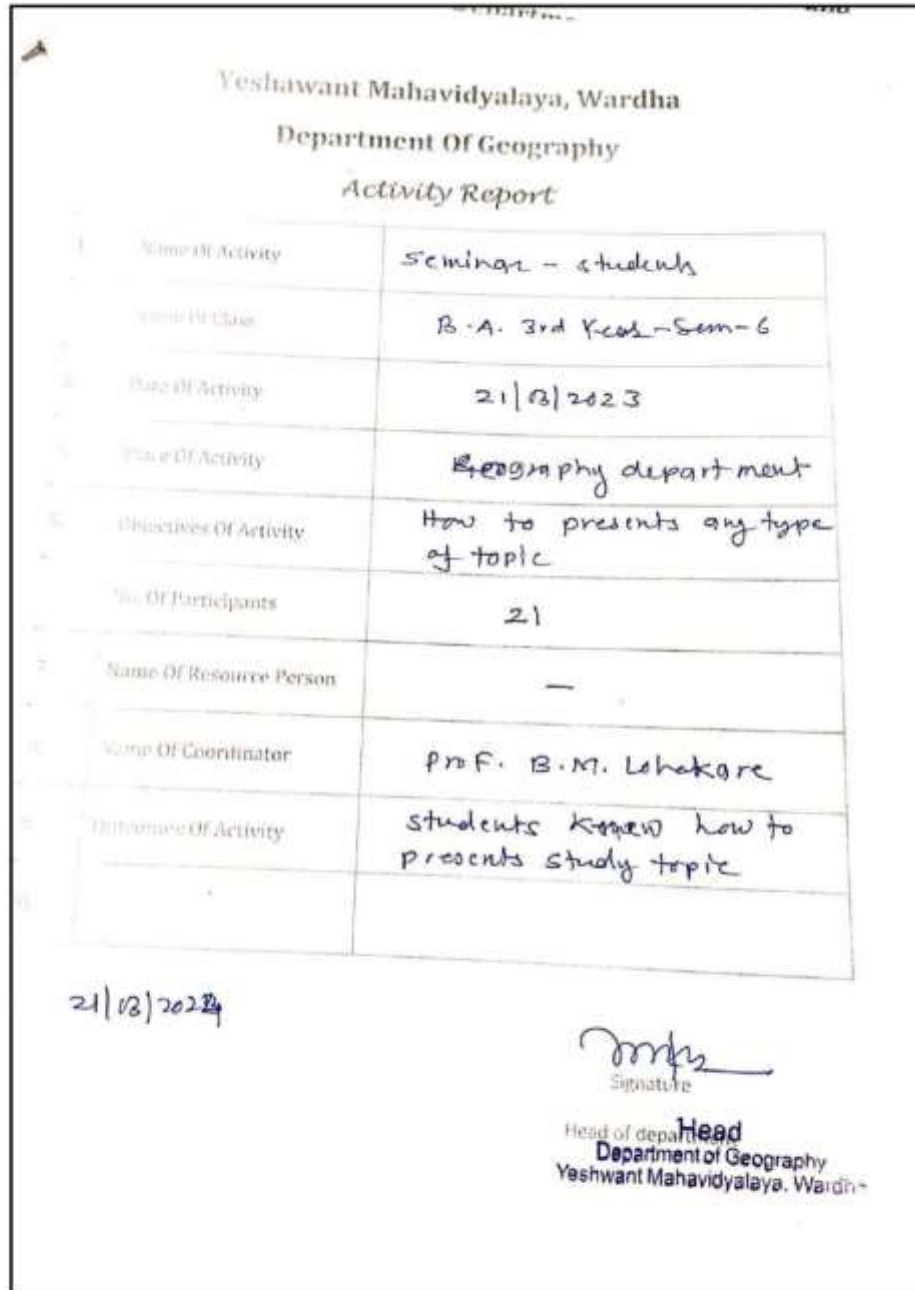 Yeshawant Mahavidyalaya, Wardha
Department Of Geography
Activity Report
Name Of Activity
seminar - students
Name Of Class
B.A. 3rd Year - Sem - 6
Date Of Activity
21/03/2023
Place Of Activity
Geography department
Objectives Of Activity
How to presents any type
of topic
No. Of Participants
21
7. Name Of Resource Person
—
Name Of Coordinator
Prof. B.M. Lohakare
Outcomes Of Activity
students know how to
presents study topic
21/03/2024
Signature
Head of department
Head
Department of Geography
Yeshwant Mahavidyalaya, Wardh